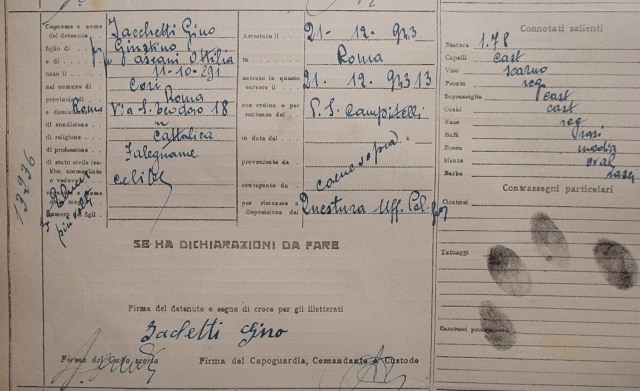 Cognome e nome del detenuto Zacchetti Gino
figlio di fu Giustino
e di fu Ascani Ottilia
nato il 11-10-291
nel comune di Cori
provincia di Roma
e domiciliato Roma Via S. Teodoro 18
di condizione
di religione cattolica
di professione Falegname
di stato civile celibe
numero di figli
Arrestato il 21-12-943
in Roma
entrato in questo carcere il 21.12.943 13
con ordine e per sentenza del P.S. Campitelli
in data del
proveniente da come sopra
consegnato da
per rimanere a disposizione del Questura Uff. Pol.
Connotati salienti
Statura 1.78
Capelli cast
Viso scarno
Fronte reg
Sopracciglia cast
Occhi cast
Naso reg
Baffi rasi
Bocca media
Mento oval
Barba rasa
Contrassegni particolari
Cicatrici
Tatuaggi
13236
SE HA DICHIARAZIONI DA FARE
Firma del detenuto o segno di croce per gli illetterati
Zacchetti Gino
Firma del Capo scorta
Firma del Capoguardia, Comandante o Custode